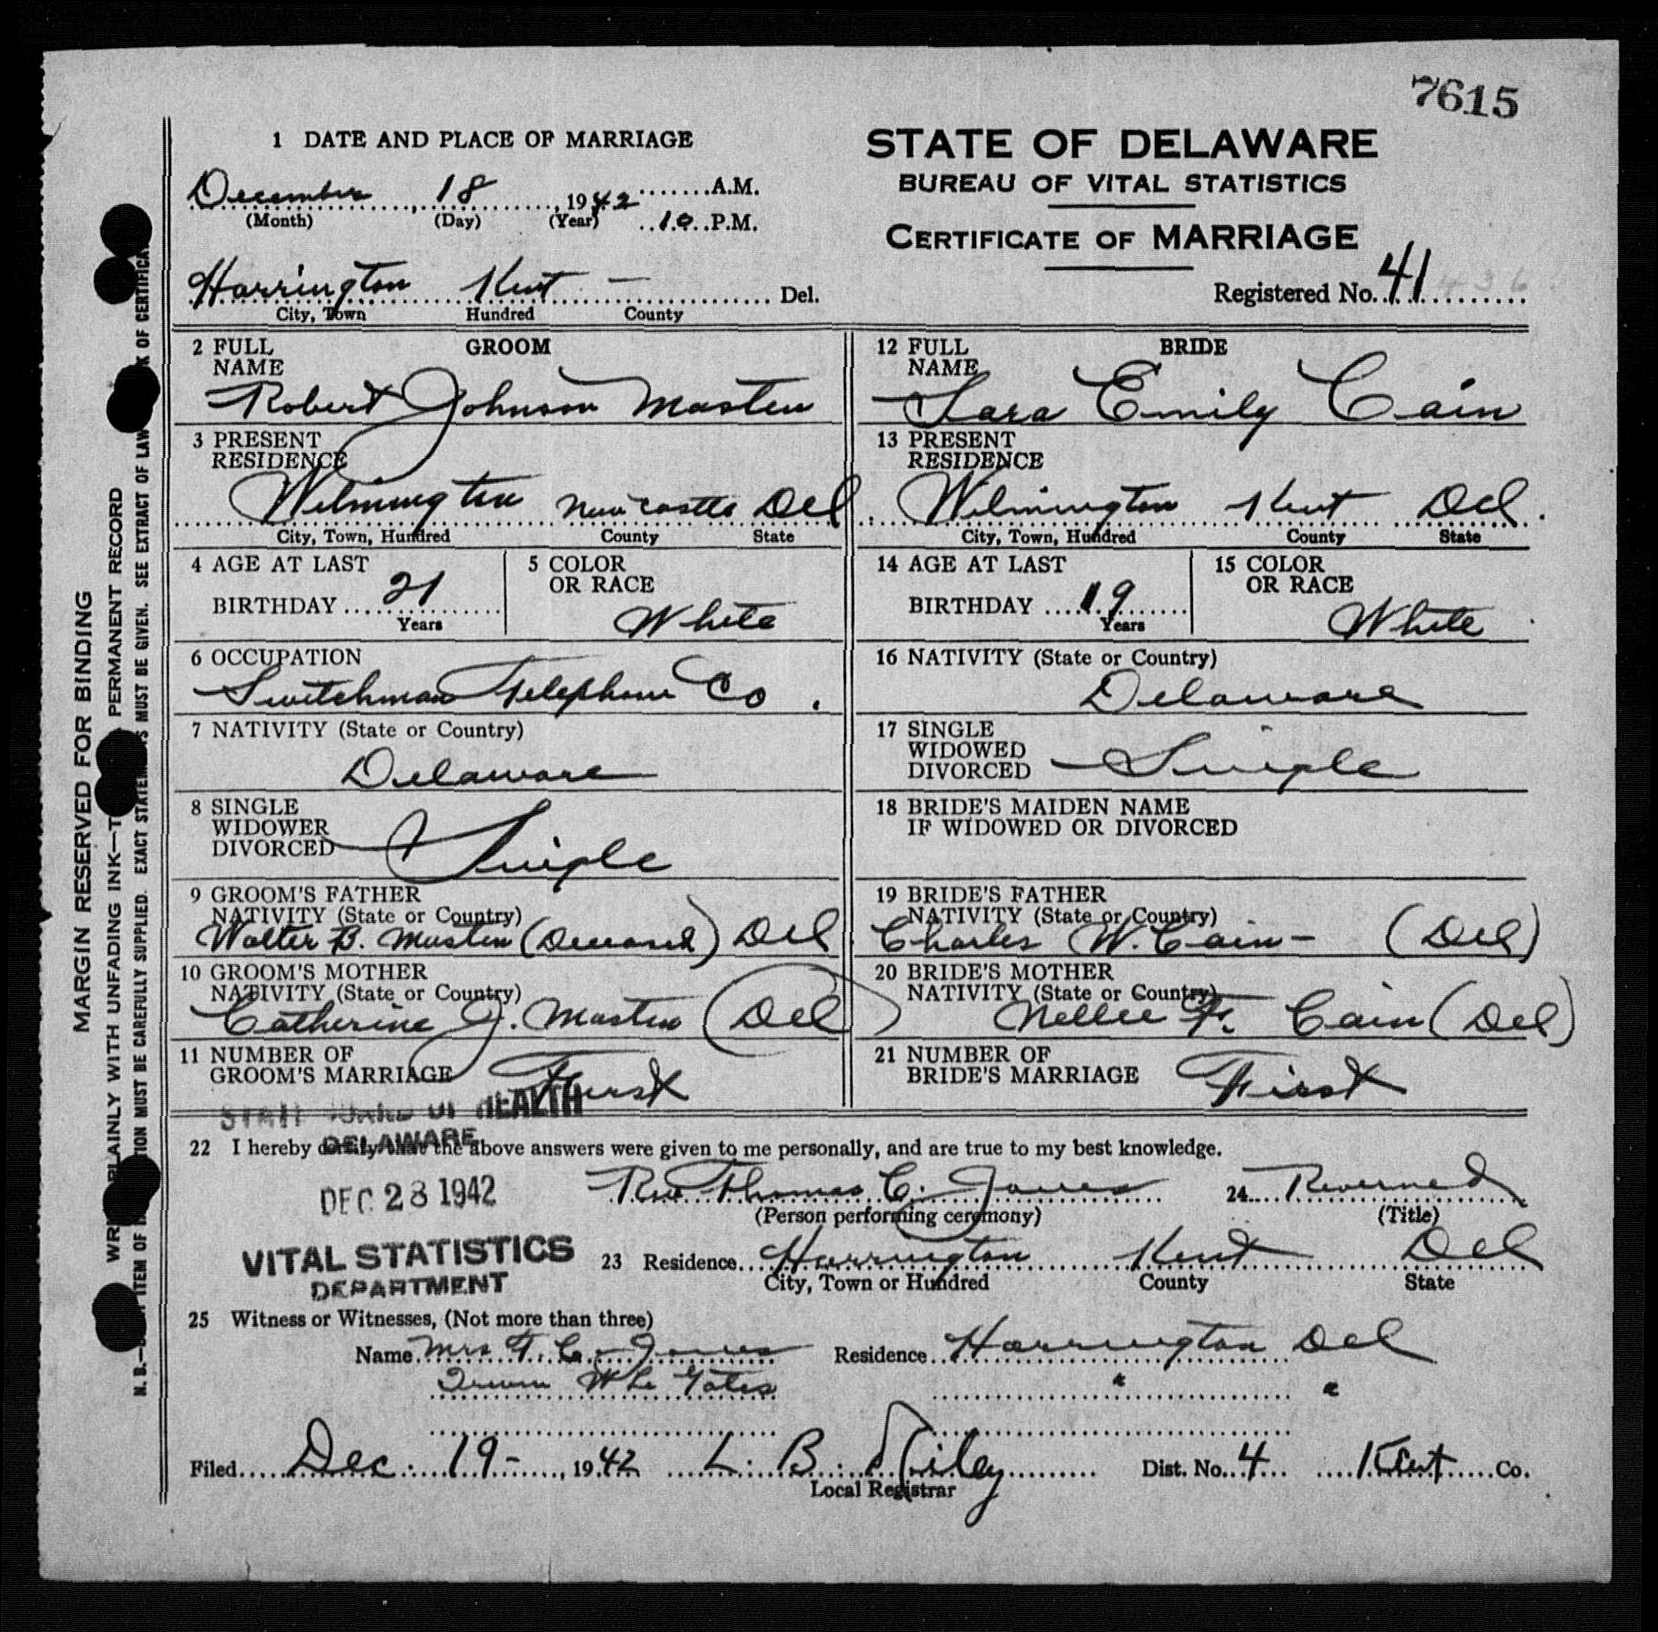 7615
1 DATE AND PLACE OF MARRIAGE
December 18, 1942 A.M.
(Month) (Day) (Year) 10 P.M.
Harrington Kent — Del.
City, Town Hundred County
STATE OF DELAWARE
BUREAU OF VITAL STATISTICS
CERTIFICATE OF MARRIAGE
Registered No. 41
2 FULL NAME GROOM
Robert Johnson Masten
3 PRESENT RESIDENCE
Wilmington New Castle Del
City, Town, Hundred County State
4 AGE AT LAST BIRTHDAY 21 Years
5 COLOR OR RACE
White
6 OCCUPATION
Switchman Telephone Co.
7 NATIVITY (State or Country)
Delaware
8 SINGLE WIDOWER DIVORCED
Single
9 GROOM'S FATHER
NATIVITY (State or Country)
Walter B. Masten (Deceased) Del
10 GROOM'S MOTHER
NATIVITY (State or Country)
Catherine J. Masten (Del)
11 NUMBER OF
GROOM'S MARRIAGE First
12 FULL NAME BRIDE
Sara Emily Cain
13 PRESENT RESIDENCE
Wilmington Kent Del.
City, Town, Hundred County State
14 AGE AT LAST BIRTHDAY 19 Years
15 COLOR OR RACE
White
16 NATIVITY (State or Country)
Delaware
17 SINGLE WIDOWED DIVORCED
Single
18 BRIDE'S MAIDEN NAME
IF WIDOWED OR DIVORCED
19 BRIDE'S FATHER
NATIVITY (State or Country)
Charles W. Cain — (Del)
20 BRIDE'S MOTHER
NATIVITY (State or Country)
Nellie F. Cain (Del)
21 NUMBER OF
BRIDE'S MARRIAGE First
STATE BOARD OF HEALTH
DELAWARE
22 I hereby certify that the above answers were given to me personally, and are true to my best knowledge.
DEC 28 1942
Rev Thomas C. Jones 24 Reverned
(Person performing ceremony) (Title)
VITAL STATISTICS
DEPARTMENT
23 Residence Harrington Kent Del
City, Town or Hundred County State
25 Witness or Witnesses, (Not more than three)
Name Mrs T. C. Jones Residence Harrington Del
" "
Filed Dec. 19 - , 1942 L. B. Riley Dist. No. 4 Kent Co.
Local Registrar
MARGIN RESERVED FOR BINDING
PLAINLY WITH UNFADING INK— PERMANENT RECORD
N. B.— ITEM OF MUST BE CAREFULLY SUPPLIED. EXACT MUST BE GIVEN. SEE EXTRACT OF LAW OF